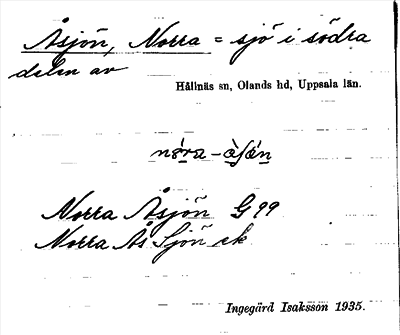 Åsjön, Norra = sjö i södra
delen av
Hållnäs sn, Olands hd, Uppsala län.
nór̲a - àʃǿn̲
Norra Åsjön G 99
Norra Ås Sjön ek
Ingegärd Isaksson 1935.